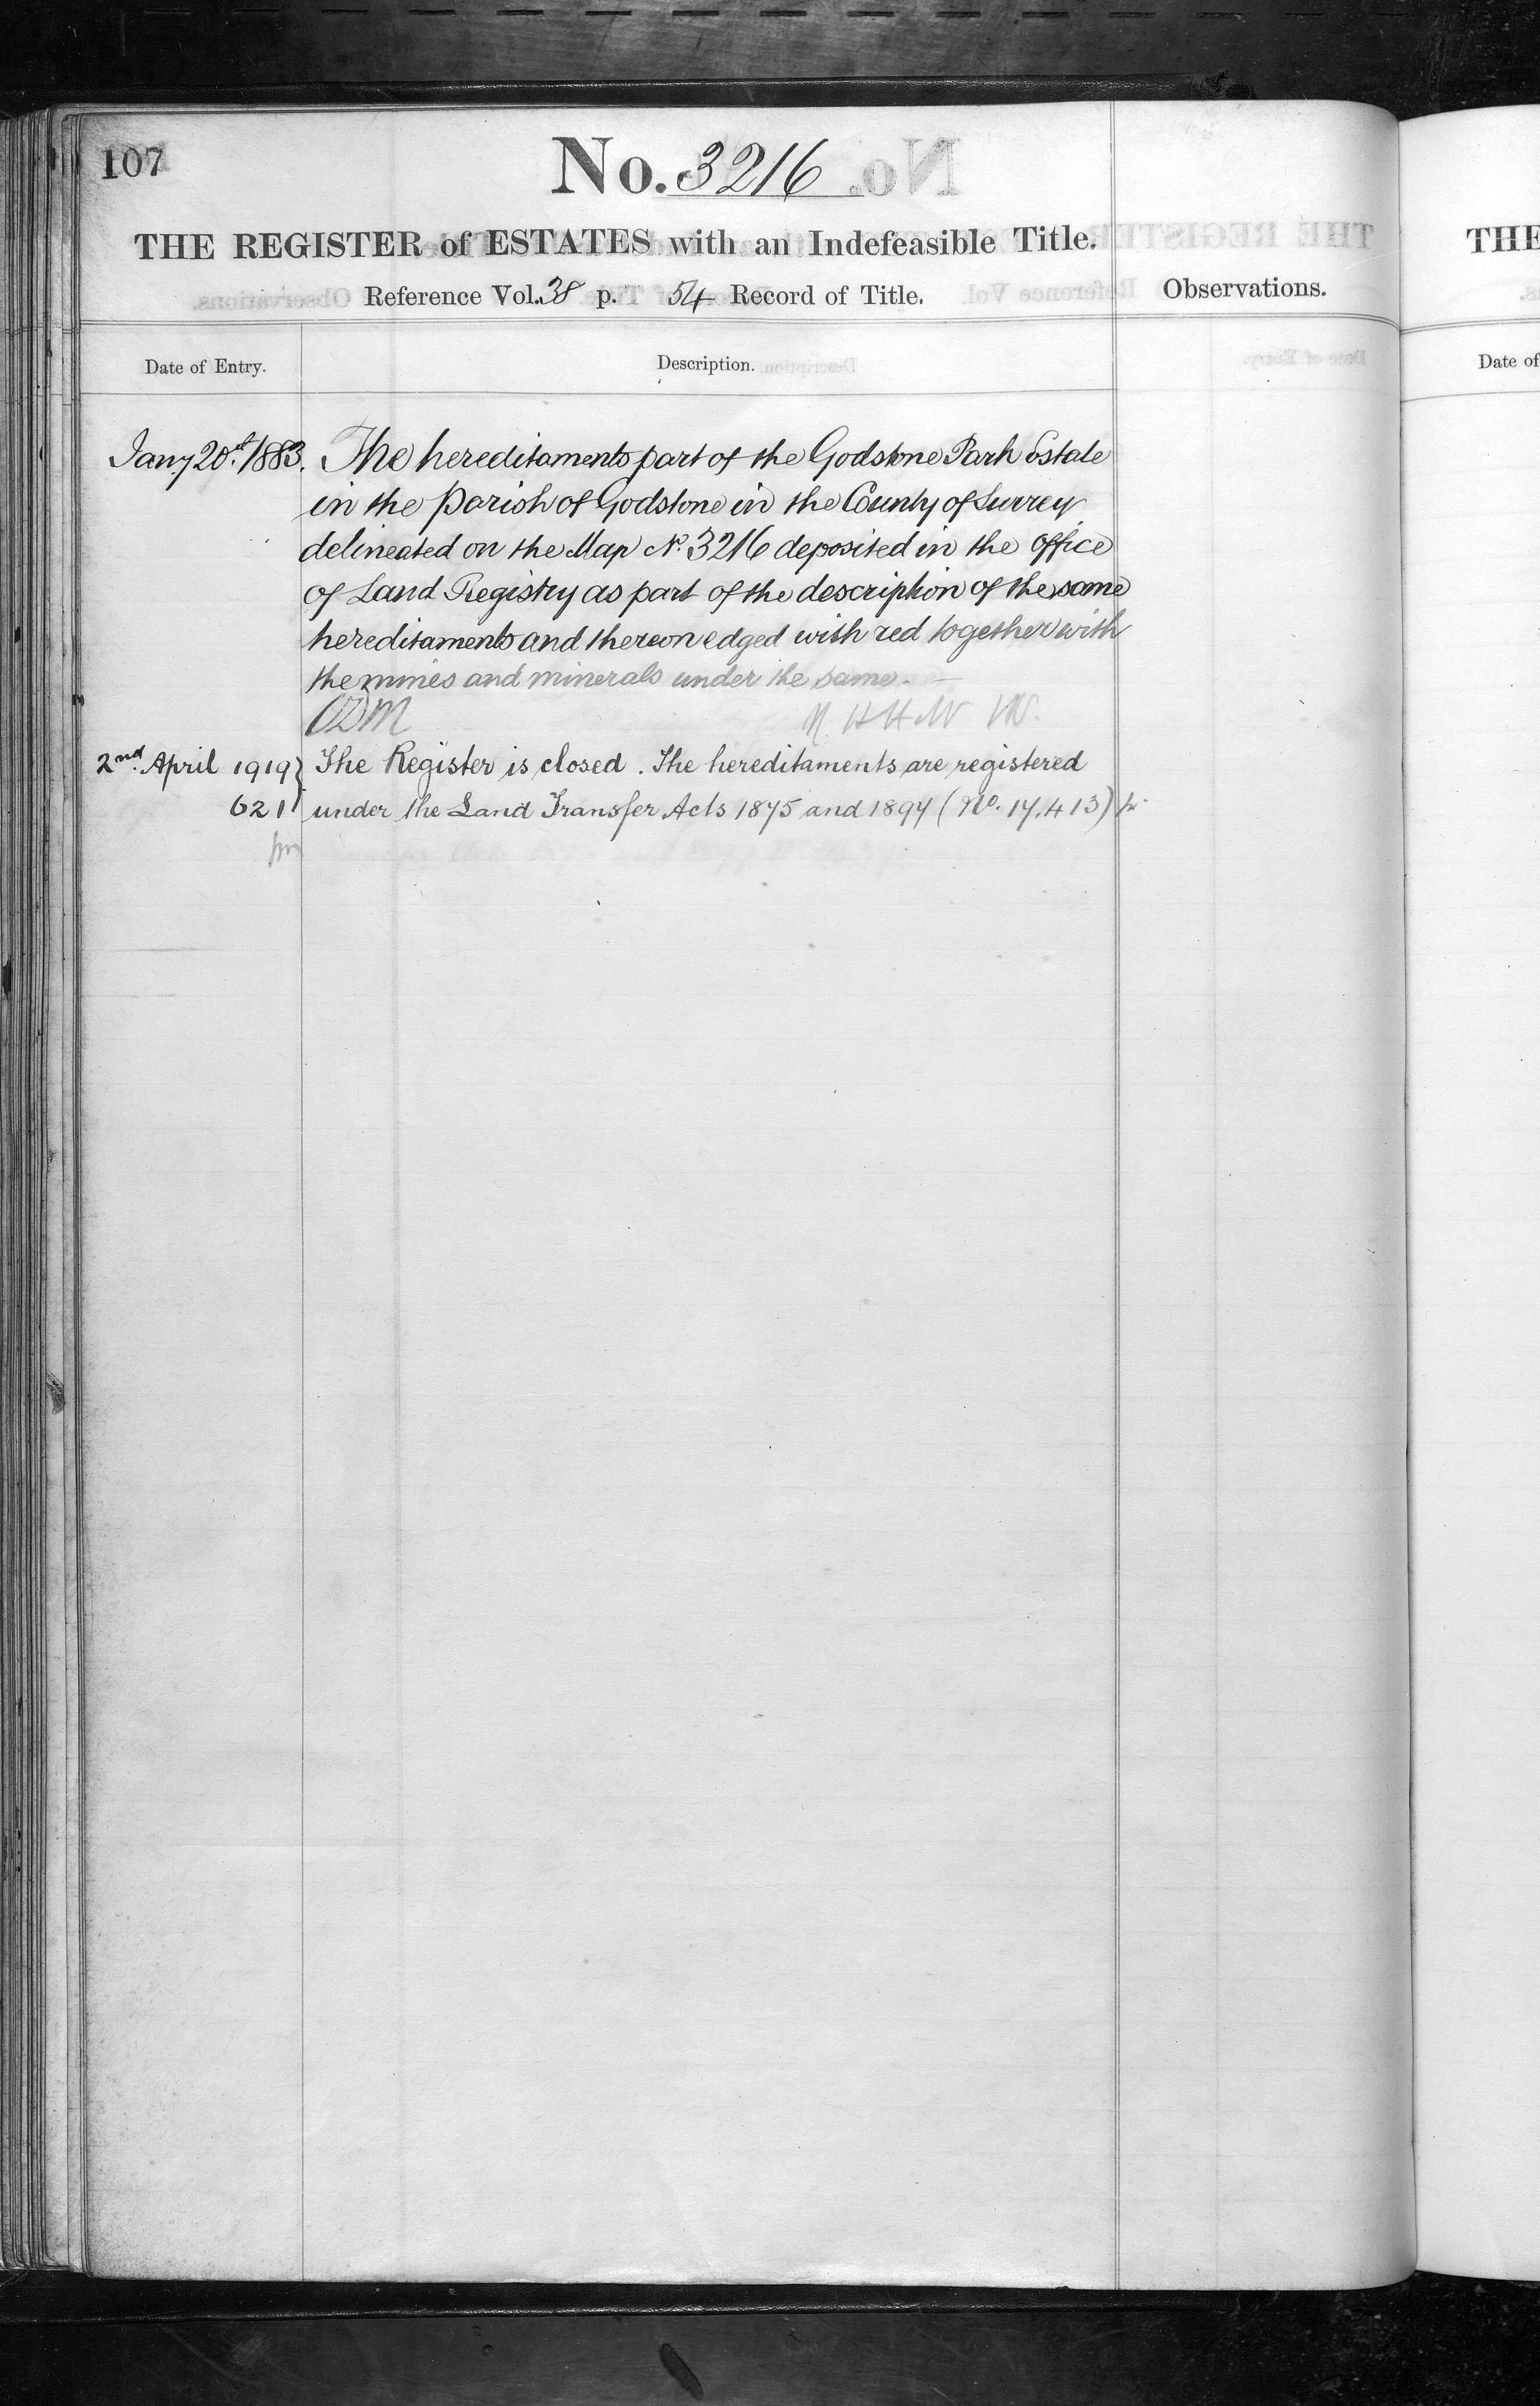 107
No. 3216
THE REGISTER of ESTATES with an Indefeasible Title.
Reference Vol. 38 p. 54 Record of Title.
Observations.
Date of Entry.
Description.
Jany 20th 1883. The hereditaments part of the Godstone Park Estate
in the Parish of Godstone in the County of Surrey
delineated on the Map No. 3216 deposited in the office
of Land Registry as part of the description of the same
hereditaments and thereon edged with red together with
the mines and minerals under the same.
2nd April 1919 The Register is closed. The hereditaments are registered
621 under the Land Transfer Acts 1875 and 1897 (No. 17.413)
THE
Date of